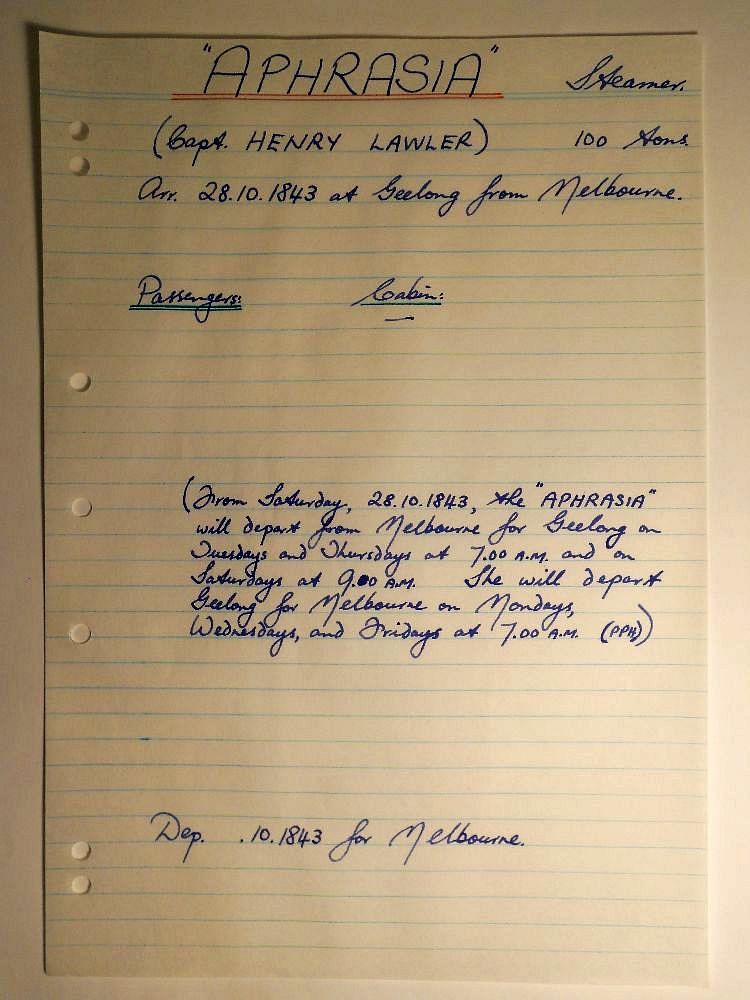 "APHRASIA" Steamer.
(Capt. HENRY LAWLER) 100 tons.
Arr. 28.10.1843 at Geelong from Melbourne.
Passengers: Cabin:
—
(From Saturday, 28.10.1843, the "APHRASIA"
will depart from Melbourne for Geelong on
Tuesdays and Thursdays at 7.00 A.M. and on
Saturdays at 9.00 A.M. She will depart
Geelong for Melbourne on Mondays,
Wednesdays, and Fridays at 7.00 A.M. (PPH))
Dep. .10.1843 for Melbourne.